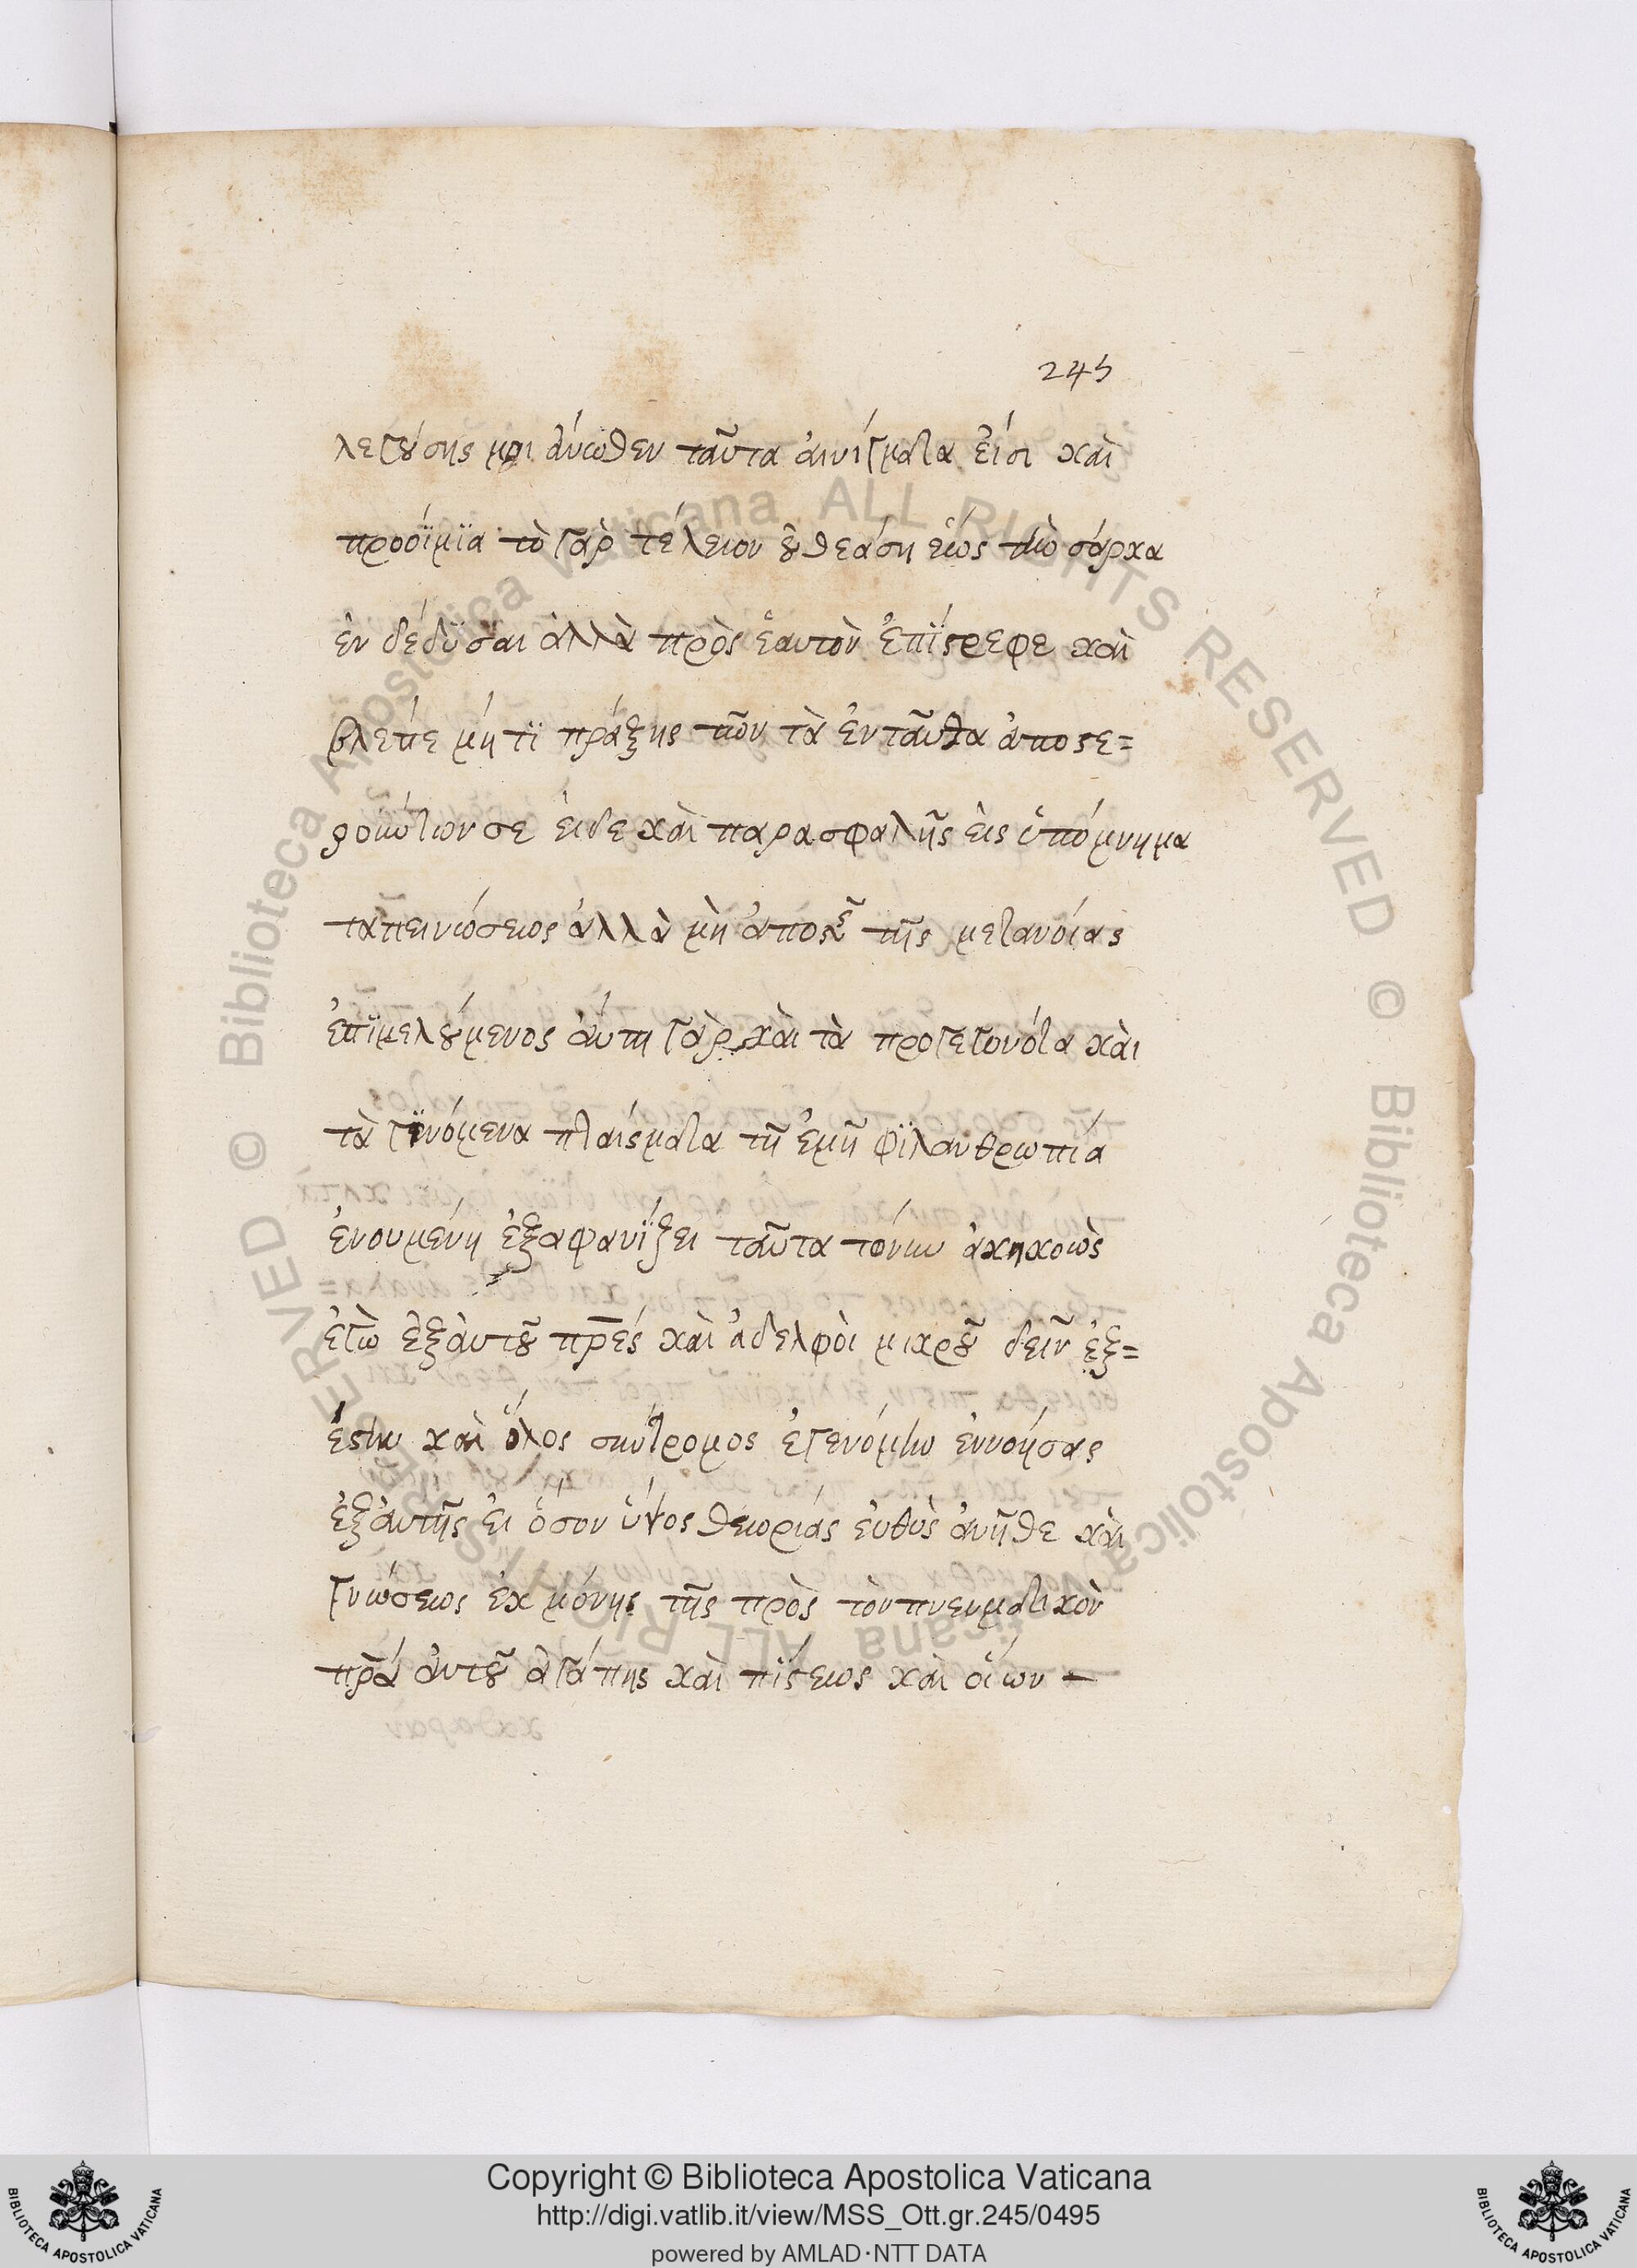 245
λεγούσης μοι ἄνωθεν ταῦτα αἰνίγματα εἰσι καὶ
προοίμϊα τὸ γὰρ τέλειον οὐ θεάση ἕως τὴν σάρκα
ἐν δέδϋσαι ἀλλὰ πρὸς ἑαυτὸν ἐπίστρεφε καὶ
βλέπε μή τϊ πράξης τῶν τὰ ἐνταῦθα ἀποστε=
ρούντων σε εἰ δε καὶ παρασφαλῆς εἰς ὑπόμνημα
ταπεινώσεως ἀλλὰ μὴ ἀποστῆς τῆς μετανοίας
ἐπϊμελούμενος αὕτη γὰρ καὶ τὰ προγεγονότα καὶ
τὰ γινόμενα πταίσματα τῆ ἐμῆ φϊλανθρωπία
ἐνουμένη ἐξαφανίζει ταῦτα τοίνυν ἀκηκοὼς
ἐγὼ ἐξ αὐτοῦ πρες καὶ ἀδελφοὶ μικροῦ δεῖν ἐξ=
έστην καὶ ὅλος σύντρομος ἐγενόμην ἐννοήσας
ἐξαυτῆς εἰ ὅσον ὕψος θεωρίας εὐθὺς ἀνῆθε καὶ
γνώσεως ἐκ μόνης τῆς πρὸς τὸν πνευματικὸν
πρα αὐτοῦ ἀγάπης καὶ πίστεως καὶ οἵων
Copyright © Biblioteca Apostolica Vaticana
http://digi.vatlib.it/view/MSS_Ott.gr.245/0495
powered by AMLAD·NTT DATA
BIBLIOTECA APOSTOLICA VATICANA
BIBLIOTECA APOSTOLICA VATICANA
© Biblioteca Apostolica Vaticana ALL RIGHTS RESERVED © Biblioteca Apostolica Vaticana ALL RIGHTS RESERVED